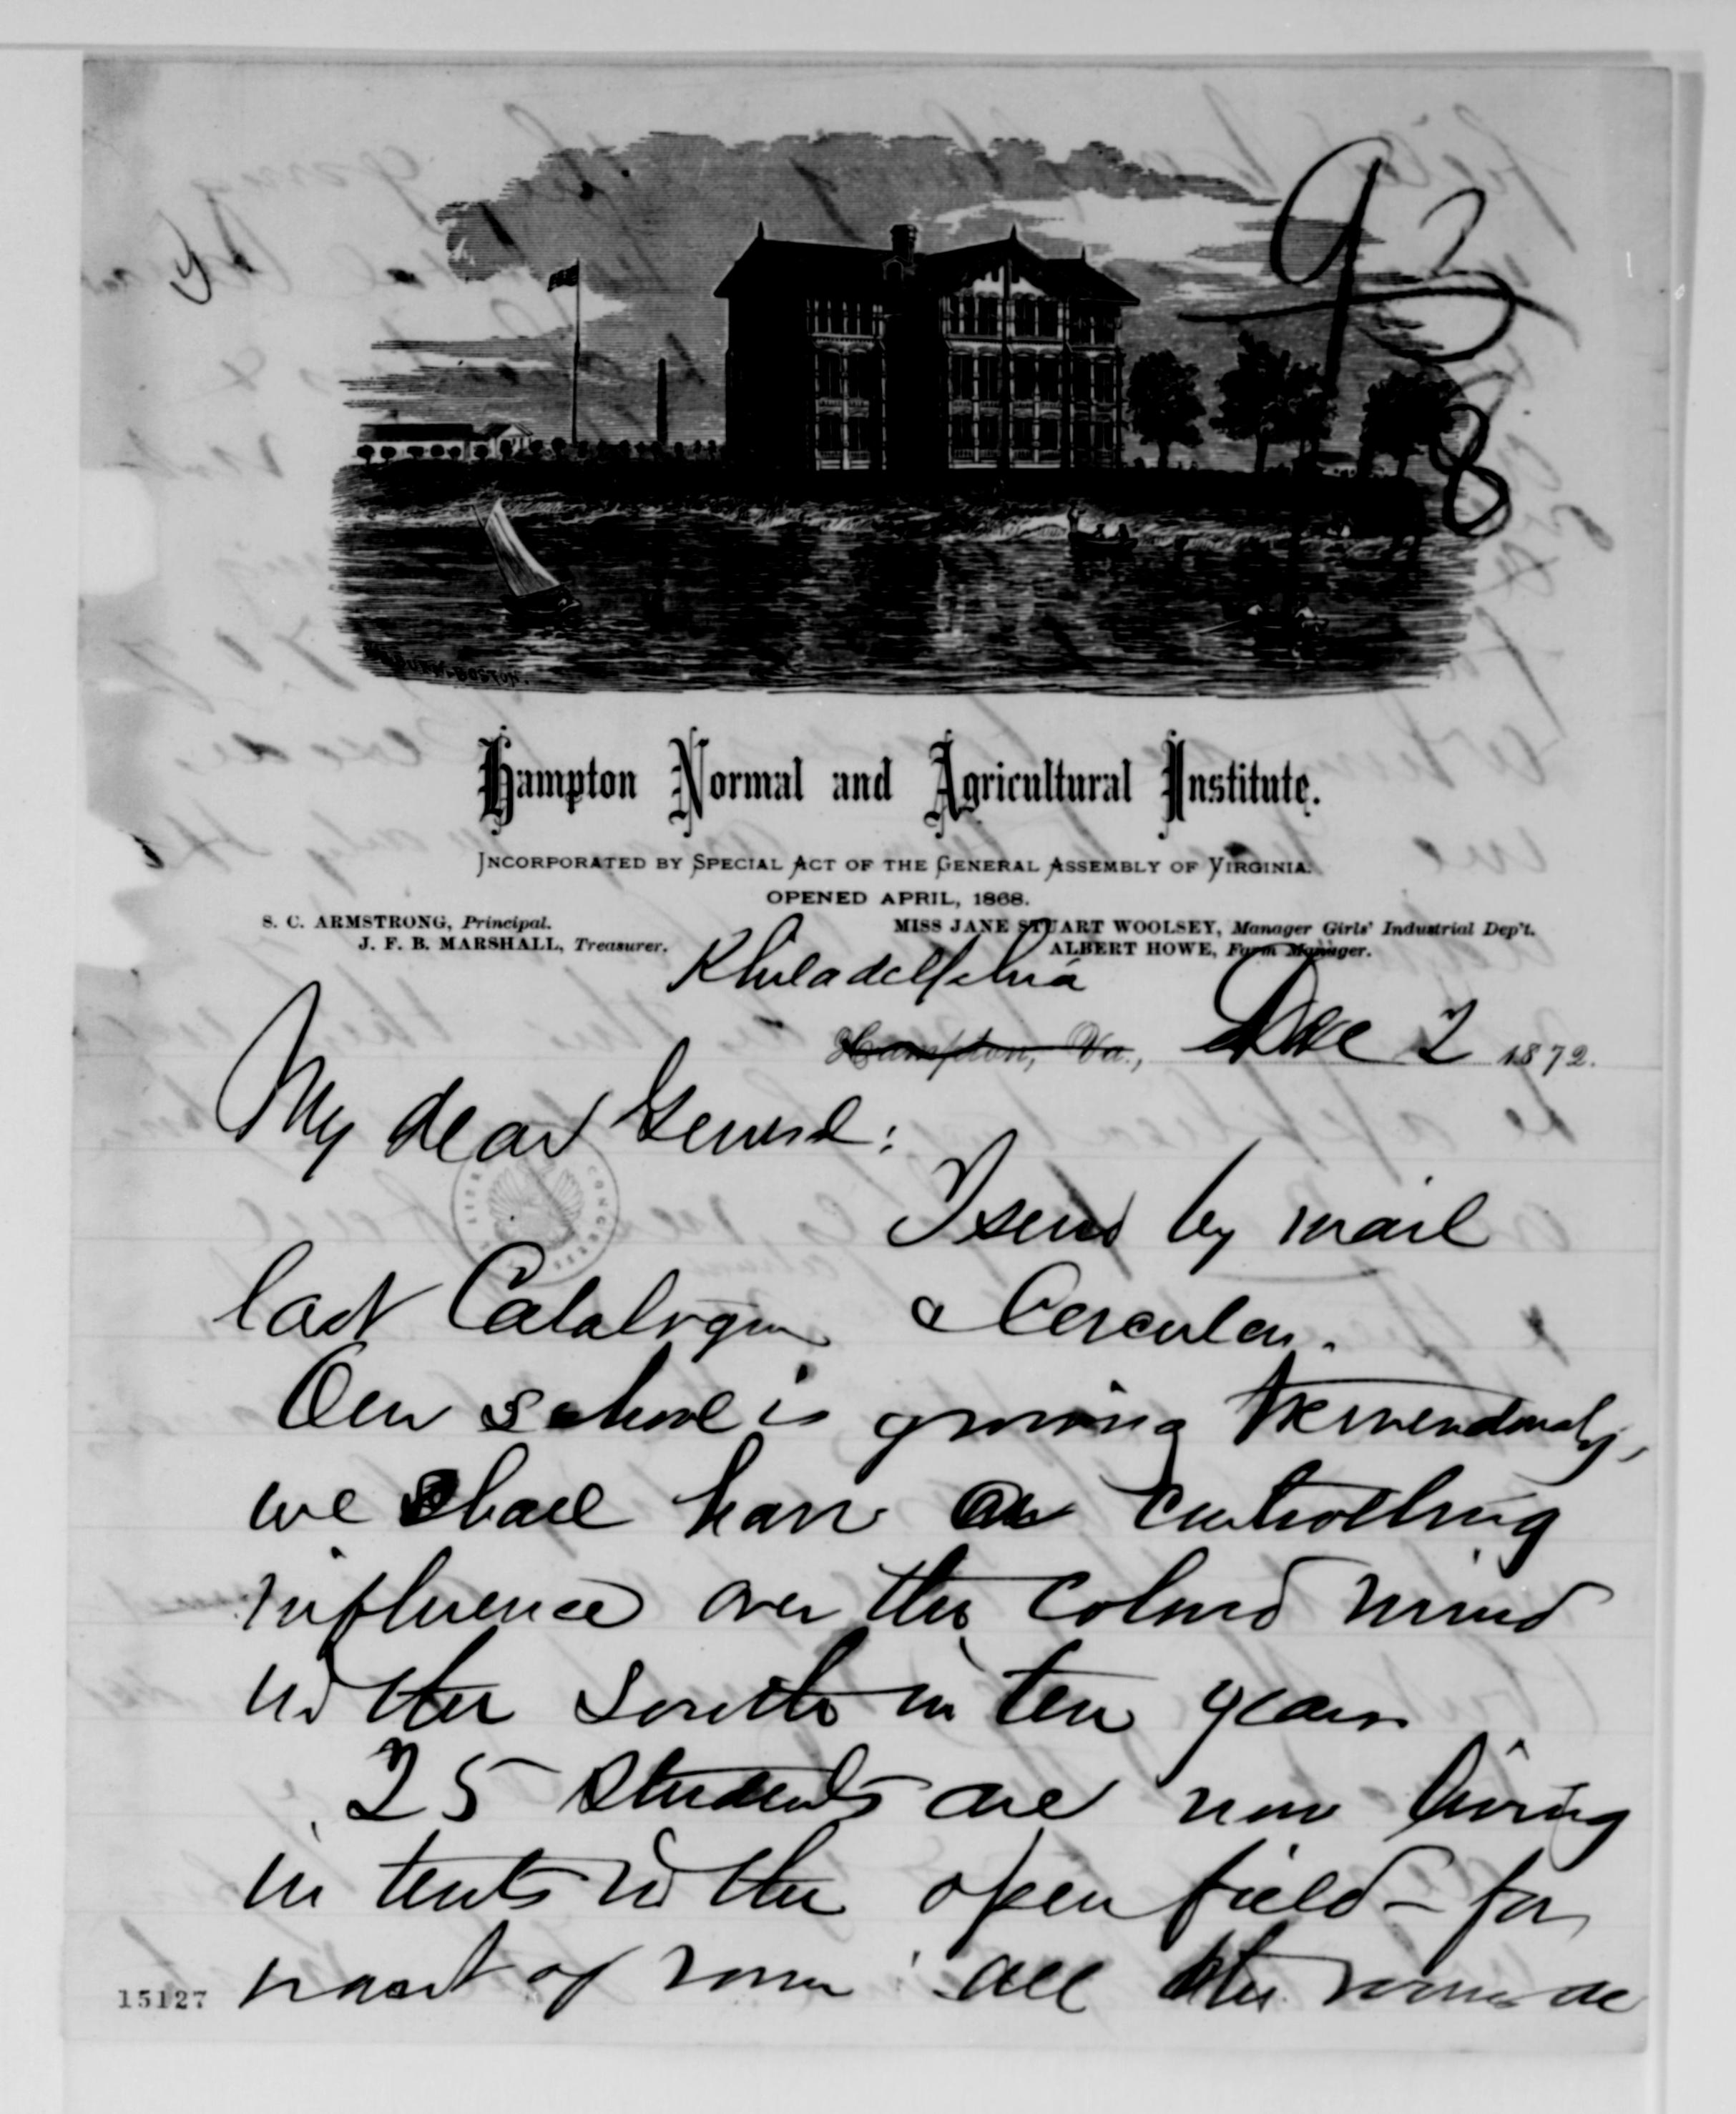 93
8
Hampton Normal and Agricultural Institute.
INCORPORATED BY SPECIAL ACT OF THE GENERAL ASSEMBLY OF VIRGINIA.
OPENED APRIL, 1868.
S. C. ARMSTRONG, Principal.
J. F. B. MARSHALL, Treasurer.
MISS JANE STUART WOOLSEY, Manager Girls' Industrial Dep't.
ALBERT HOWE, Farm Manager.
Philadelphia
Hampton, Va., Dec 2 1872.
My dear General:
I send by mail
last Catalogue & Circular.
Our school is growing tremendously,
we shall have a controlling
influence over the colored mind
in the South in ten years
25 students are now living
in tents in the open field – for
want of room all the rooms are
15127